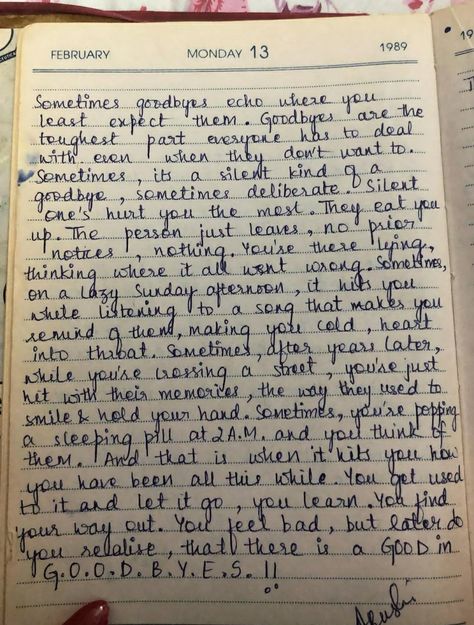 FEBRUARY MONDAY 13 1989
Sometimes goodbyes echo where you
least expect them. Goodbyes are the
toughest part everyone has to deal
with even when they don't want to.
Sometimes, its a silent kind of a
goodbye, sometimes deliberate. Silent
one's hurt you the most. They eat you
up. The person just leaves, no prior
notices, nothing. You're there lying,
thinking where it all went wrong. Sometimes,
on a lazy Sunday afternoon, it hits you
while listening to a song that makes you
remind of them, making you cold, heart
into throat. Sometimes, after years later,
while you're crossing a street, you're just
hit with their memories, the way they used to
smile & hold your hand. Sometimes, you're popping
a sleeping pill at 2 A.M. and you think of
them. And that is when it hits you how
you have been all this while. You get used
to it and let it go, you learn. You find
your way out. You feel bad, but later do
you realise, that there is a GOOD in
G.O.O.D.B.Y.E.S.!!